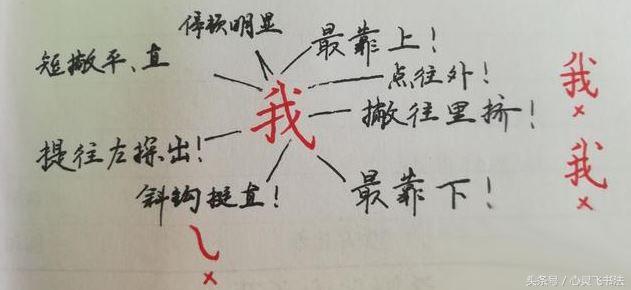 停顿明显
最靠上！
短撇平、直
点往外！
我
我
撇往里挤！
提往左探出！
我
斜钩挺直！
最靠下！
头条号／心灵飞书法